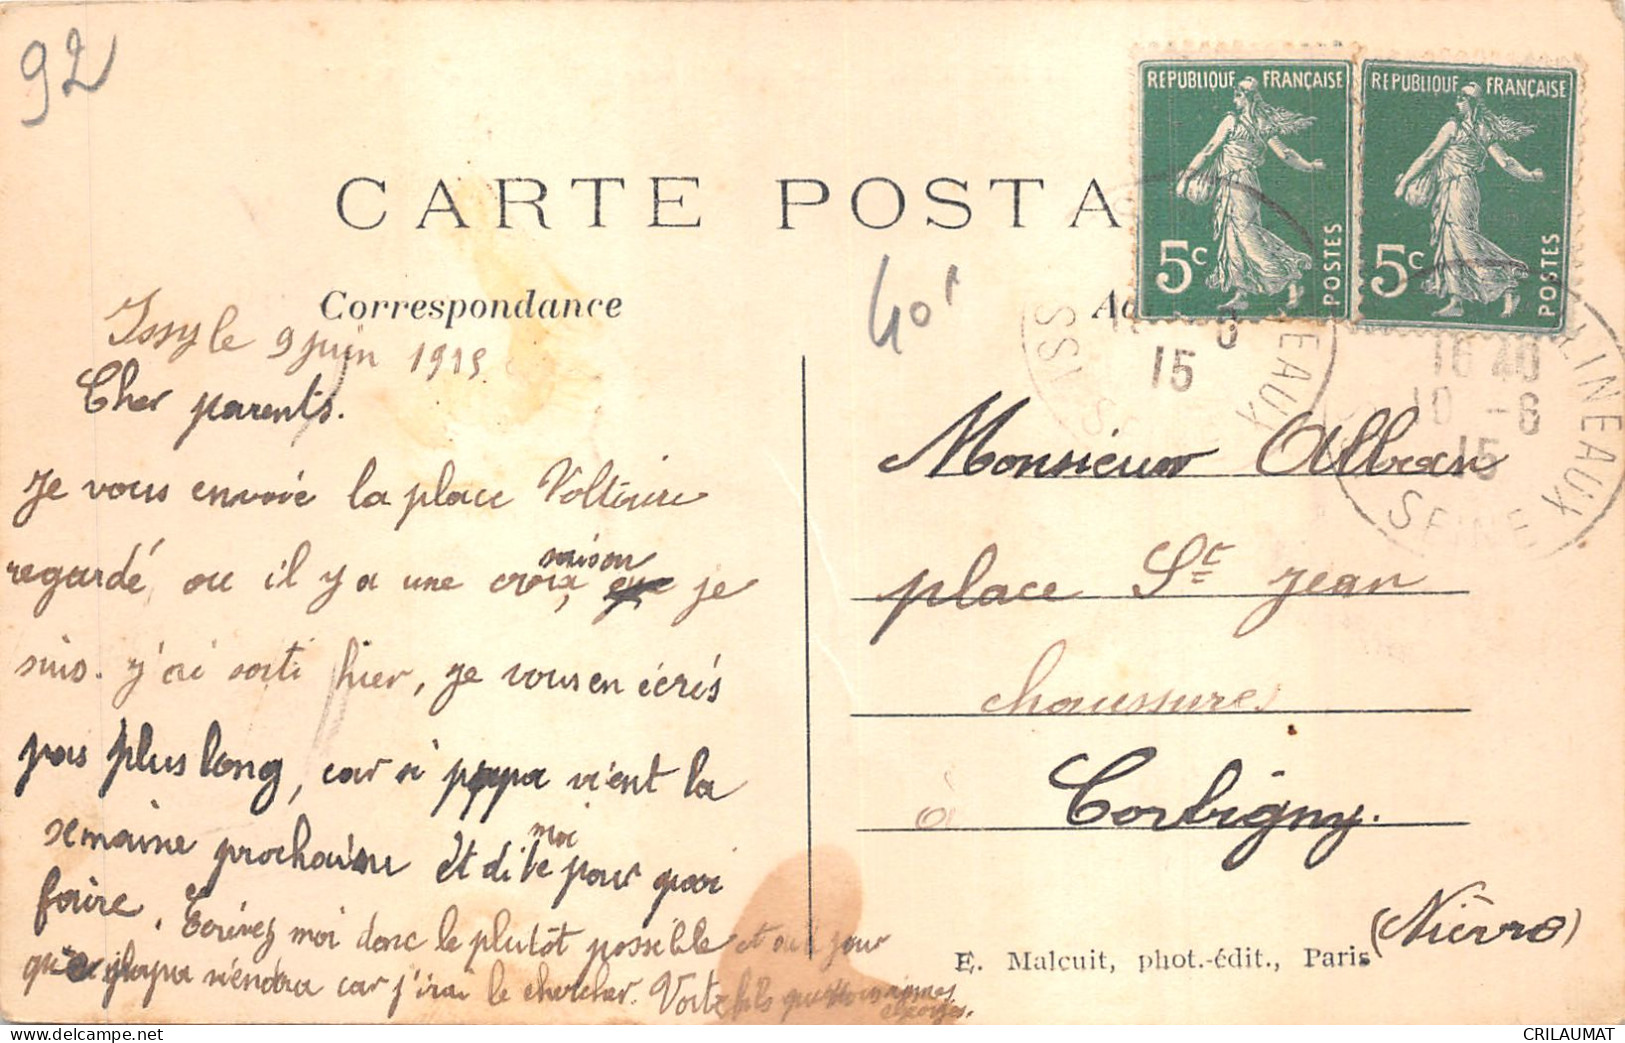 92
REPUBLIQUE FRANÇAISE
5c
POSTES
REPUBLIQUE FRANÇAISE
5c
POSTES
CARTE POSTA
40f
Correspondance
Ad
ISSY
8
15
EAUX
16 40
10 -8
15
LINEAUX
SEINE
Issy le 9 juin 1915
Cher parents.
Je vous envoie la place Voltaire
regardé, ou il y a une croix, maison je
suis. j'ai sorti hier, je vous en écris
pas plus long, car si papa vient la
semaine prochaine Et dite moi pour quoi
faire. Ecrivez moi donc le plutôt possible et ou le jour
que papa viendra car j'irai le chercher. Votre fils qui vous aimes
Georges.
Monsieur Alban
place St Jean
chaussures
à Corbigny.
(Nièvre)
E. Malcuit, phot.-édit., Paris
CRILAUMAT